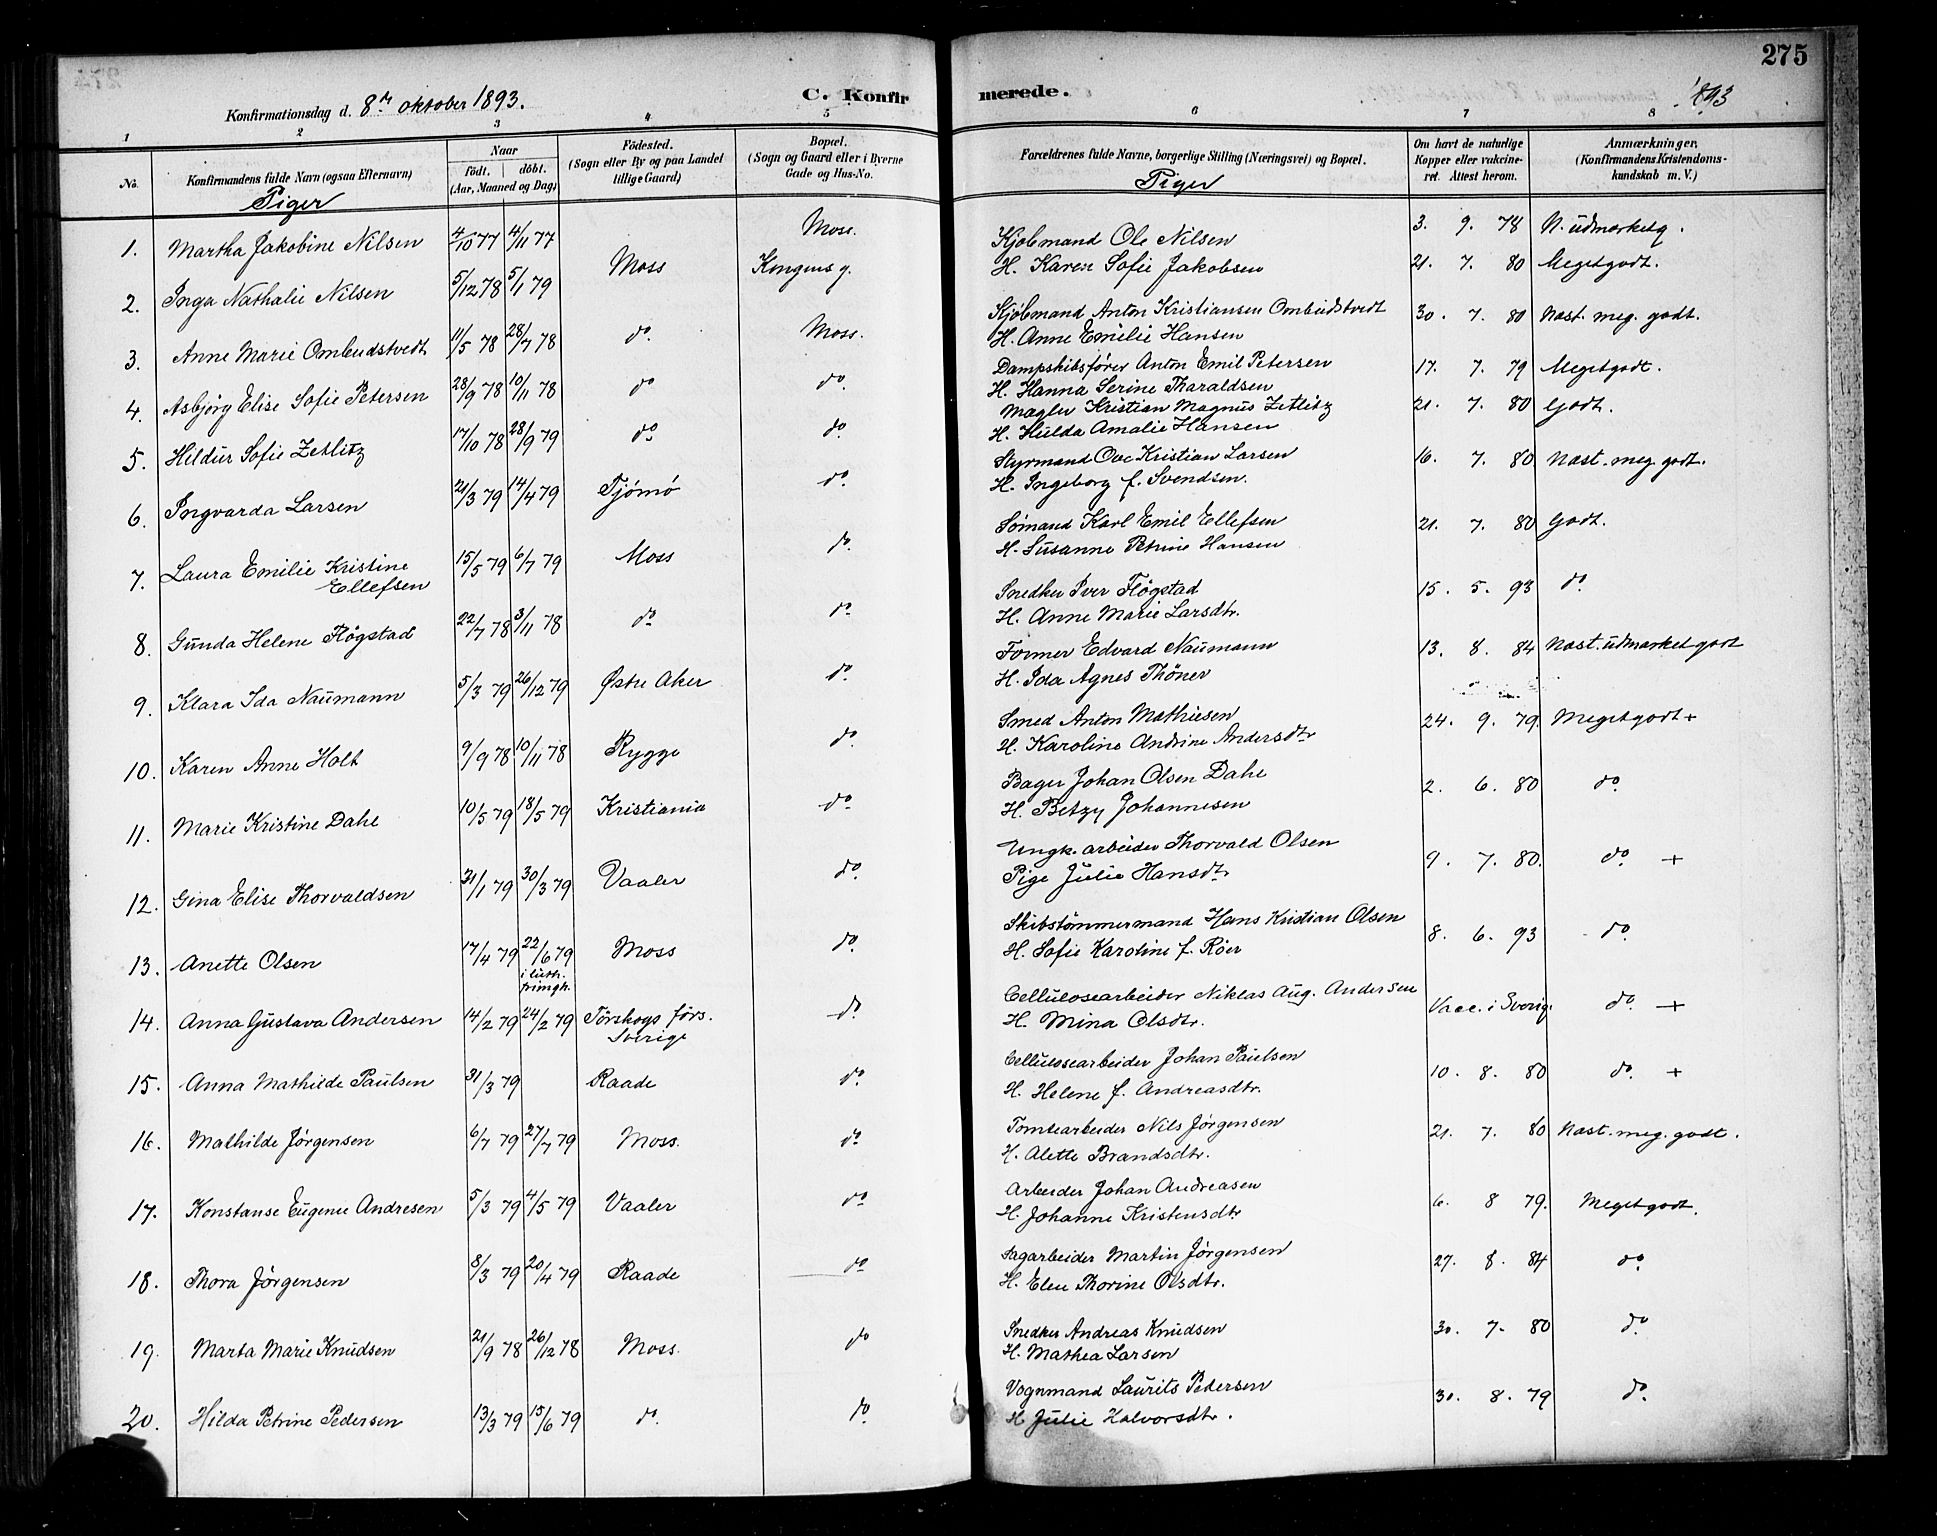 275
Konfirmationsdag d. 8de oktober 1893.
C. Konfirmerede.
1893
1 2 3 4 5 6 7 8
No.
Konfirmandens fulde Navn (ogsaa Efternavn)
Piger
Naar
födt. döbt.
(Aar, Maaned og Dag)
Födested.
(Sogn eller By og paa Landet
tillige Gaard)
Bopæl.
(Sogn og Gaard eller i Byerne
Gade og Hus-No.
Forældrenes fulde Navne, borgerlige Stilling (Næringsvei) og Bopæl.
Piger
Om havt de naturlige
Kopper eller vakcine-
ret. Attest herom.
Anmærkninger.
(Konfirmandens Kristendoms-
kundskab m. V.)
1. Martha Jakobine Nilsen 4/10 77 4/11 77 Moss. Kjøbmand Ole Nilsen 3. 9. 78 N. udmærketg.
2. Inga Nathalie Nilsen 5/12 78 5/1 79 Moss Kongens g. H. Karen Sofie Jakobsen 21. 7. 80 Megetgodt.
3. Anne Marie Ombudstvedt 11/5 78 28/7 78 do. Moss. Kjøbmand Anton Kristiansen Ombudstvedt 30. 7. 80 Næst. meg. godt.
H. Anne Emilie Hansen
4. Asbjörg Elise Sofie Petersen 28/9 78 10/11 78 do do. Dampskibsfører Anton Emil Petersen 17. 7. 79 Megetgodt.
H. Hanna Serine Tharaldsen
5. Hildur Sofie Zetlitz 17/10 78 28/9 79 do do. Mægler Kristian Magnus Zetlitz 21. 7. 80 Godt.
H. Hulda Amalie Hansen
6. Ingvarda Larsen 21/3 79 14/4 79 Tjömö do. Styrmand Ove Kristian Larsen 16. 7. 80 Næst. meg. godt.
H. Ingeborg f. Svendsen.
7. Laura Emilie Kristine 15/5 79 6/7 79 Moss do. Sömand Karl Emil Ellefsen 21. 7. 80 Godt.
Ellefsen H. Susanne Petrine Hansen
8. Gunda Helene Flögstad 22/7 78 3/11 78 do do. Snedker Iver Flögstad 15. 5. 93 do
H. Anne Marie Larsdtr.
9. Klara Ida Naumann 5/3 79 26/12 79 Østre Aker do. Former Edvard Naumann 13. 8. 84 Næst. udmærket godt
H. Ida Agnes Thöner
10. Karen Anne Holt 9/9 78 10/11 78 Rygge do. Smed Anton Mathiesen 24. 9. 79. Megetgodt +
H. Karoline Andrine Andersdtr
11. Marie Kristine Dahl 10/5 79 18/5 79 Kristiania do. Bager Johan Olsen Dahl 2. 6. 80 do.
H. Betzy Johannesen
12. Gina Elise Thorvaldsen 31/1 79 30/3 79 Vaaler do. Ungk. arbeider Thorvald Olsen 9. 7. 80. do. +
Pige Julie Hansdtr
13. Anette Olsen 17/4 79 22/6 79 Moss do. Skibstömmermand Hans Kristian Olsen 8. 6. 93 do.
i luth. frimgh. H. Sofie Karoline f. Röer
14. Anna Gustava Andersen 14/2 79 24/2 79 Törskogs förs. do Cellulosearbeider Niklas Aug. Andersen Vacc. i Sverig do. +
Sverige H. Mina Olsdtr.
15. Anna Mathilde Paulsen 31/3 79 Raade do. Cellulosearbeider Johan Paulsen 10. 8. 80 do. +
H. Helene f. Andreasdtr.
16. Mathilde Jörgensen 6/7 79 27/7 79 Moss. do. Tomtearbeider Nils Jörgensen 21. 7. 80 Næst. meg. godt.
H. Alette Brandsdtr.
17. Konstanse Eugenie Andresen 5/3 79 4/5 79 Vaaler do Arbeider Johan Andreasen 6. 8 79. Megetgodt.
H. Johanne Kristensdtr
18. Thora Jörgensen 8/3 79 20/4 79 Raade do Sagarbeider Martin Jörgensen 27. 8. 84 do.
H. Elen Thorine Olsdtr.
19. Marta Marie Knudsen 21/9 78 26/12 78 Moss. do Snedker Andreas Knudsen 30. 7. 80 do.
H. Mathea Larsen
20. Hilda Petrine Pedersen 13/3 79 15/6 79 do. do. Vognmand Laurits Pedersen 30. 8. 79 do.
H. Julie Halvorsdtr.